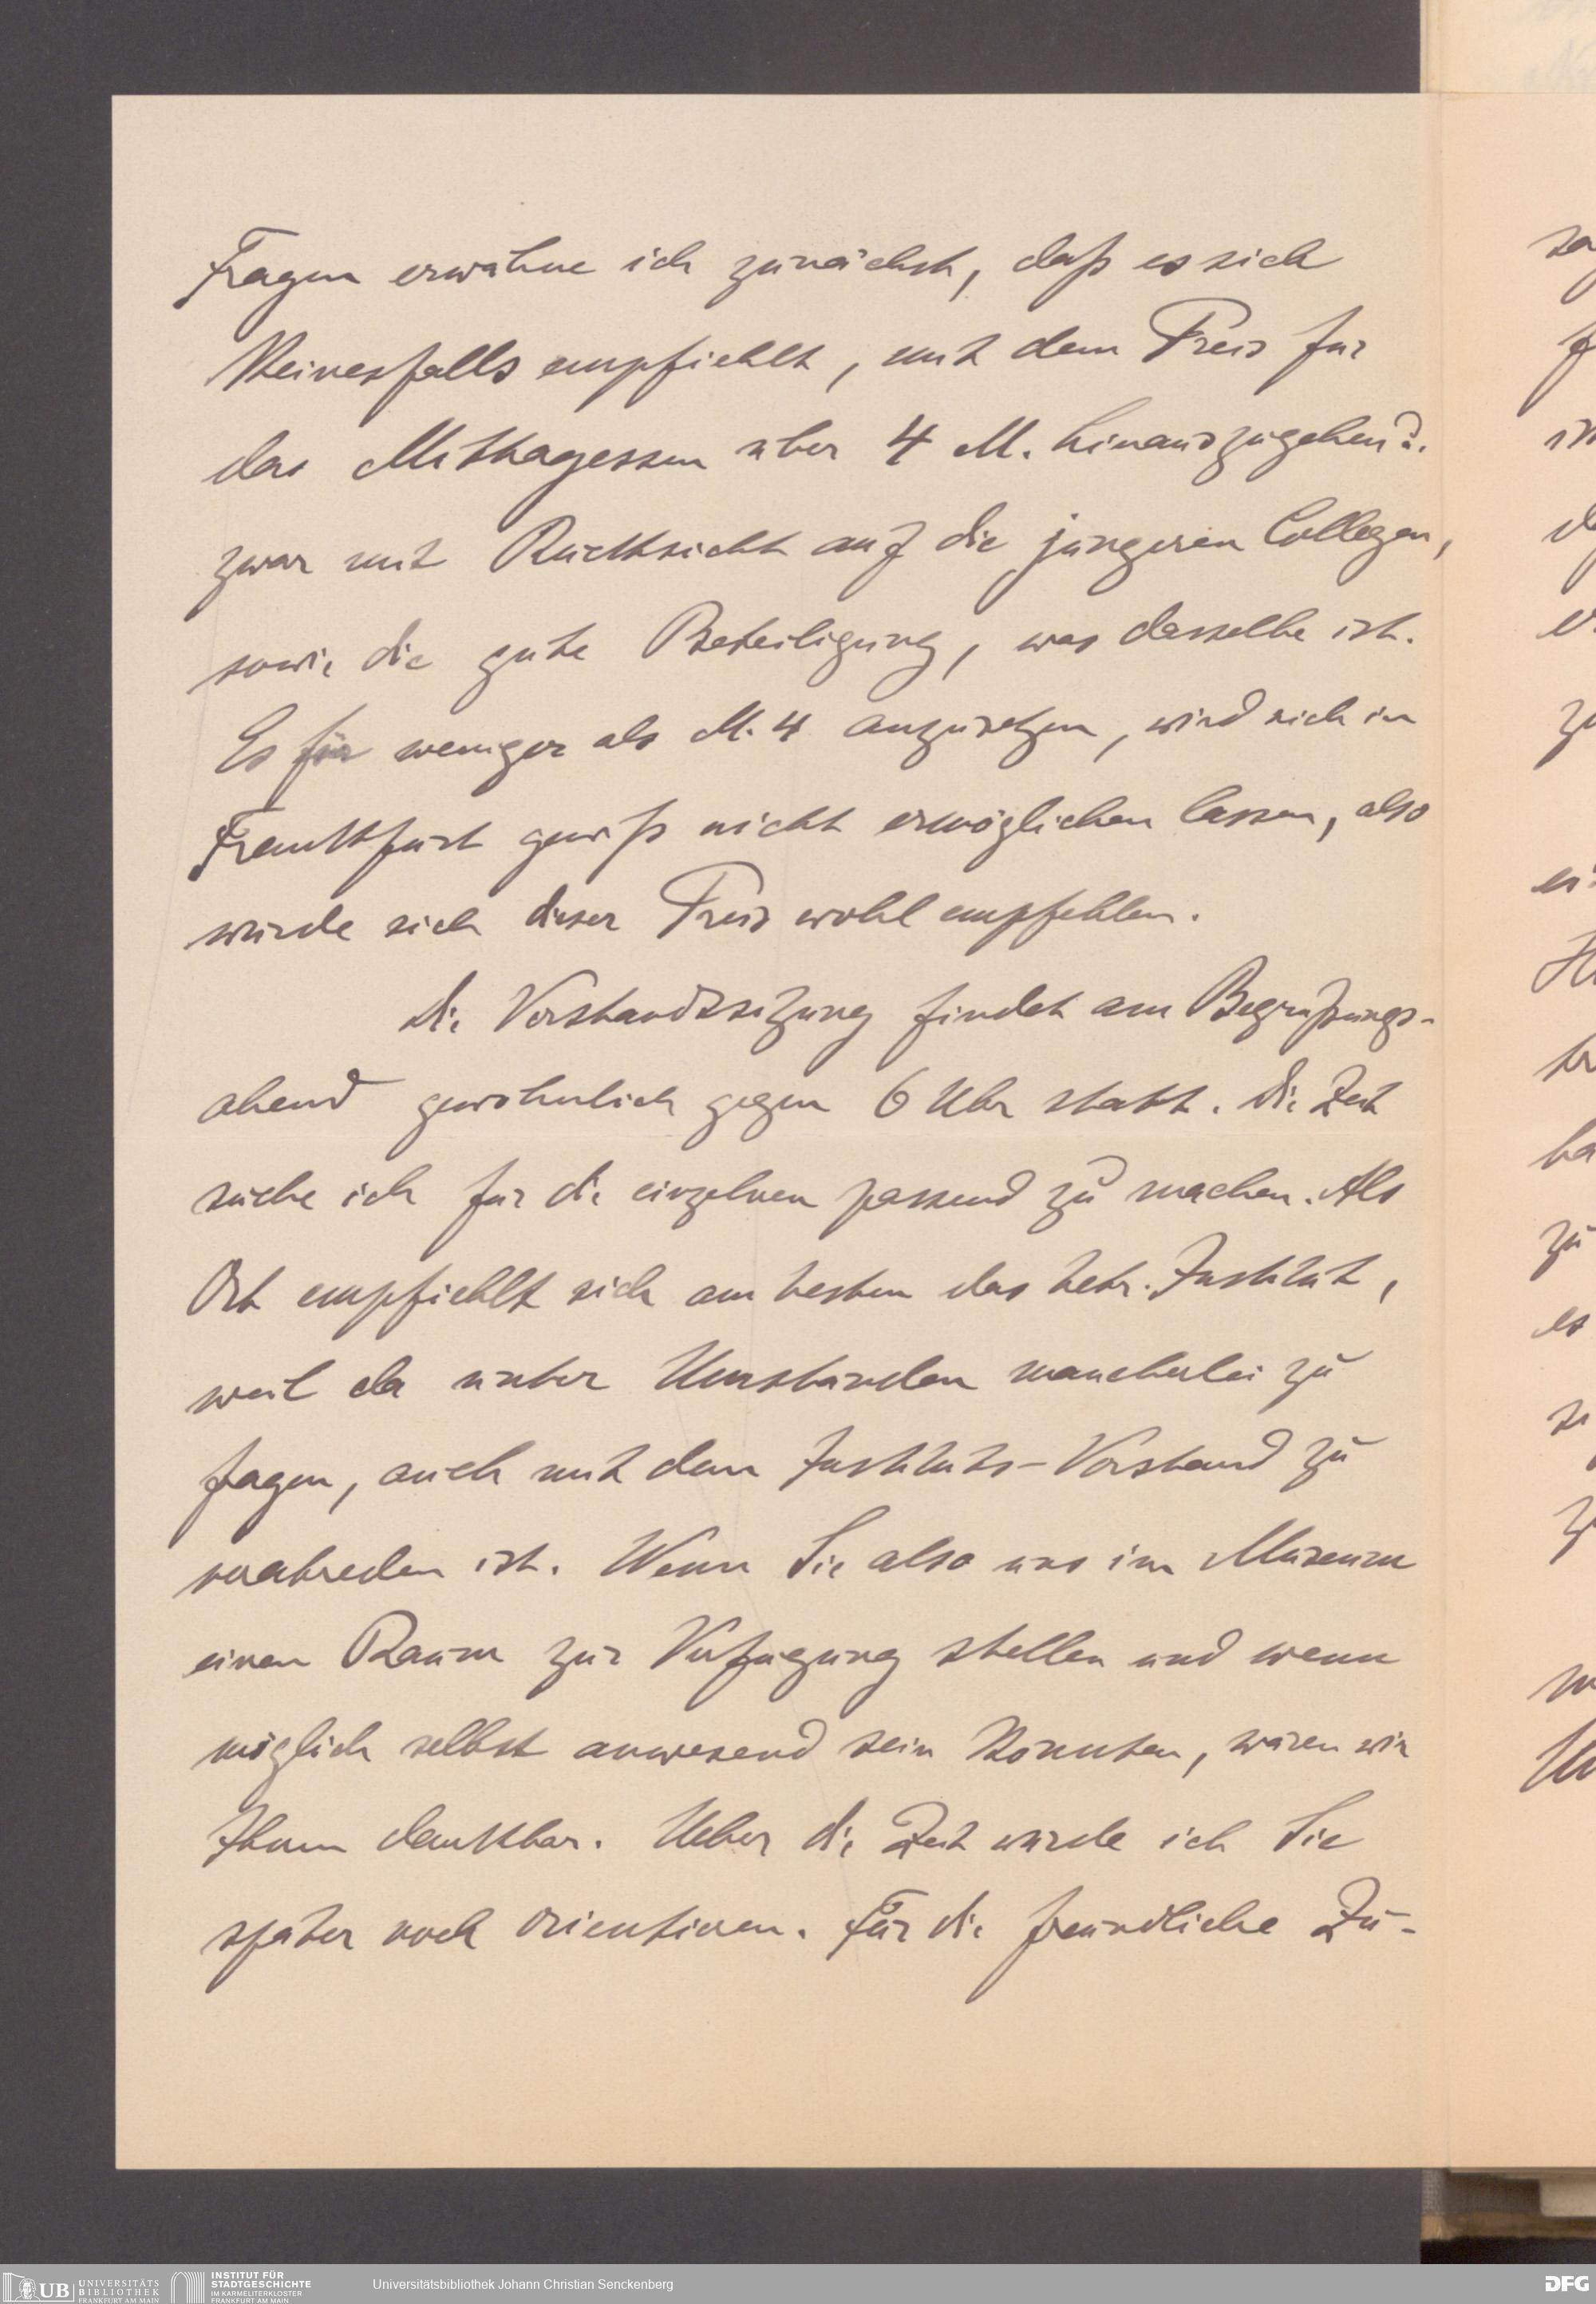 Fragen erwähne ich zunächst, daß es sich
Keinesfalls empfiehlt, mit dem Preis für
das Mittagessen über 4 M. hinauszugehen u.
zwar mit Rücksicht auf die jüngeren Collegen,
sowie die gute Beteiligung, was dasselbe ist.
Es für weniger als M. 4 anzusetzen, wird sich in
Frankfurt gewiß nicht ermöglichen lassen, also
würde sich dieser Preis wohl empfehlen.
Die Vorstandssitzung findet am Begrüßungs-
abend gewöhnlich gegen 6 Uhr statt. Die Zeit
suche ich für die einzelnen passend zu machen. Als
Ort empfiehlt sich am besten das betr. Institut,
weil da unter Umständen mancherlei zu
fragen, auch mit dem Instituts-Vorstand zu
verabreden ist. Wenn Sie also uns im Museum
einen Raum zur Verfügung stellen und wenn
möglich selbst anwesend sein könnten, wären wir
Ihnen dankbar. Ueber die Zeit würde ich Sie
später noch orientieren. Für die freundliche Zu-
UB UNIVERSITÄTS BIBLIOTHEK FRANKFURT AM MAIN
INSTITUT FÜR STADTGESCHICHTE IM KARMELITERKLOSTER FRANKFURT AM MAIN
Universitätsbibliothek Johann Christian Senckenberg
DFG